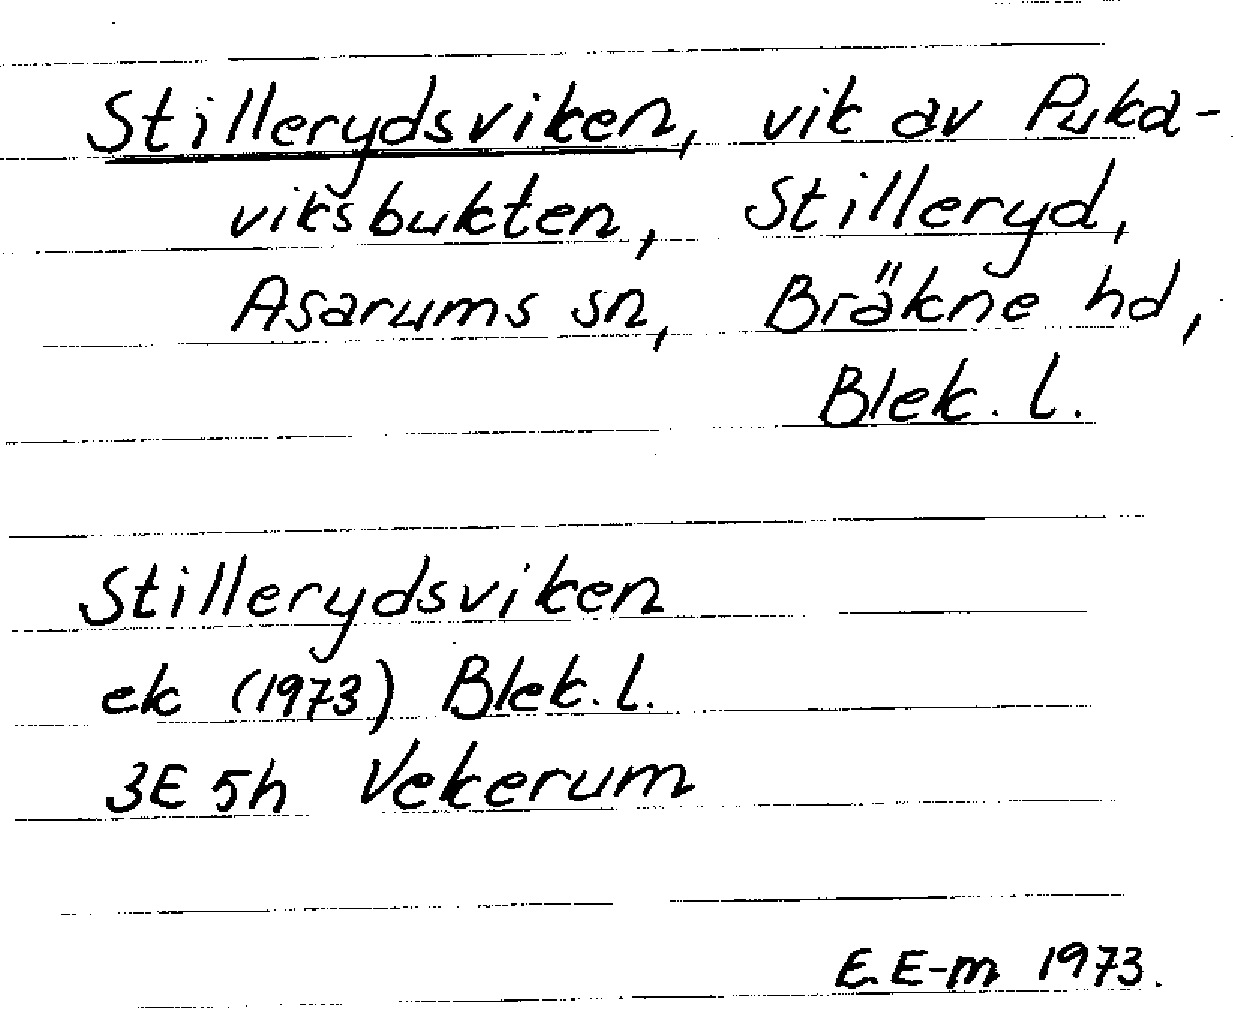 Stillerydsviken, vik av Puka-
viksbukten, Stilleryd,
Asarums sn, Bräkne hd,
Blek. l.
Stillerydsviken
ek (1973) Blek. l.
3E 5h Vekerum
E.E-m 1973.